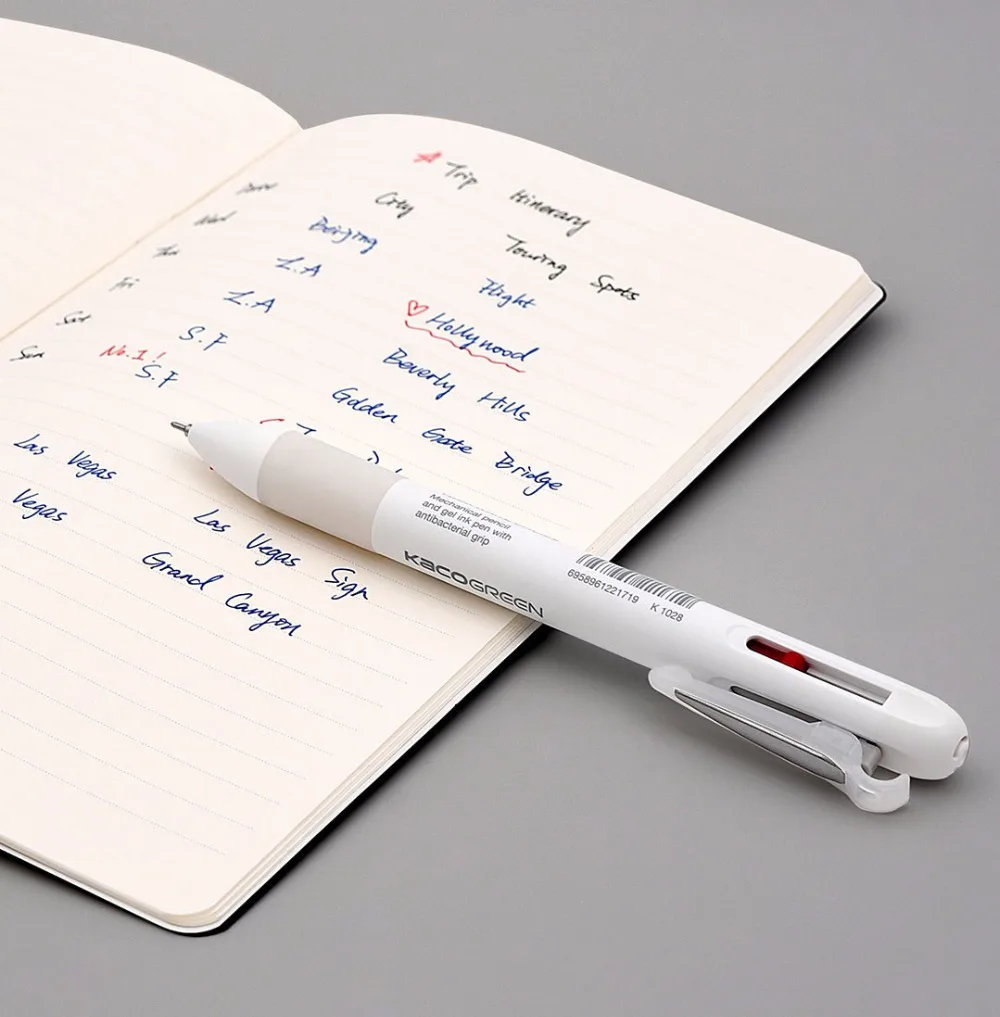 Trip Itinerary
City Touring Spots
Beijing Flight
Wed L.A Hollywood
Thu L.A Beverly Hills
Fri S.F Golden Gate Bridge
No.1!
Sat S.F
Sun
Las Vegas Las Vegas Sign
Vegas Grand Canyon
Mechanical pencil
and gel ink pen with
antibacterial grip
KACOGREEN
6958961221719 K 1028